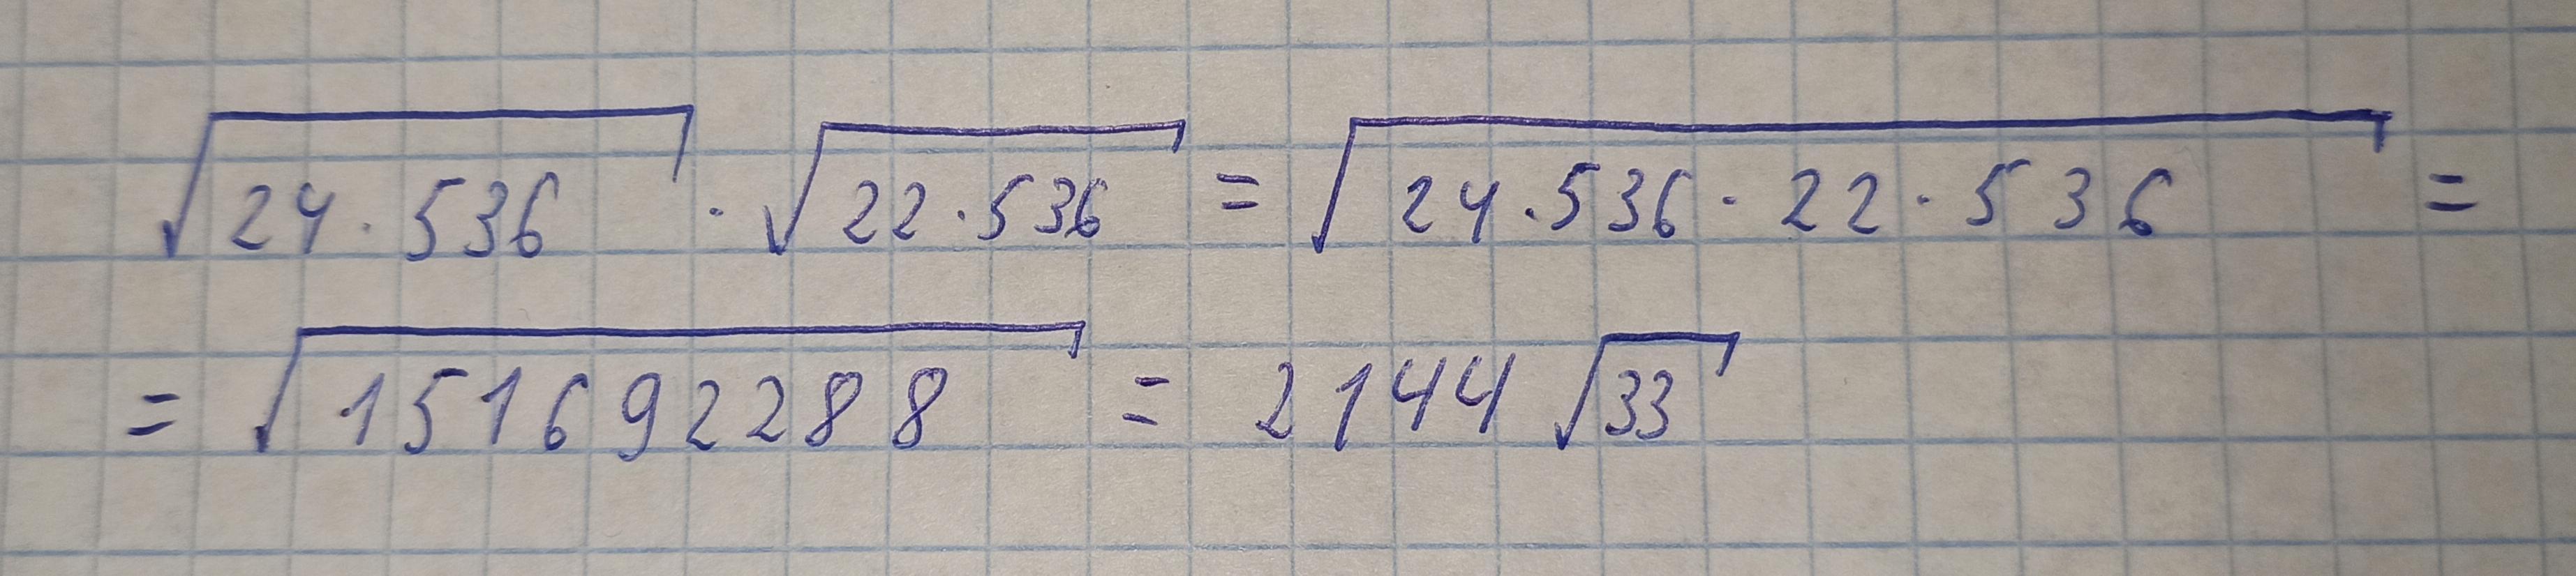 √24·536 · √22·536 = √24·536·22·536 =
= √151692288 = 2144 √33